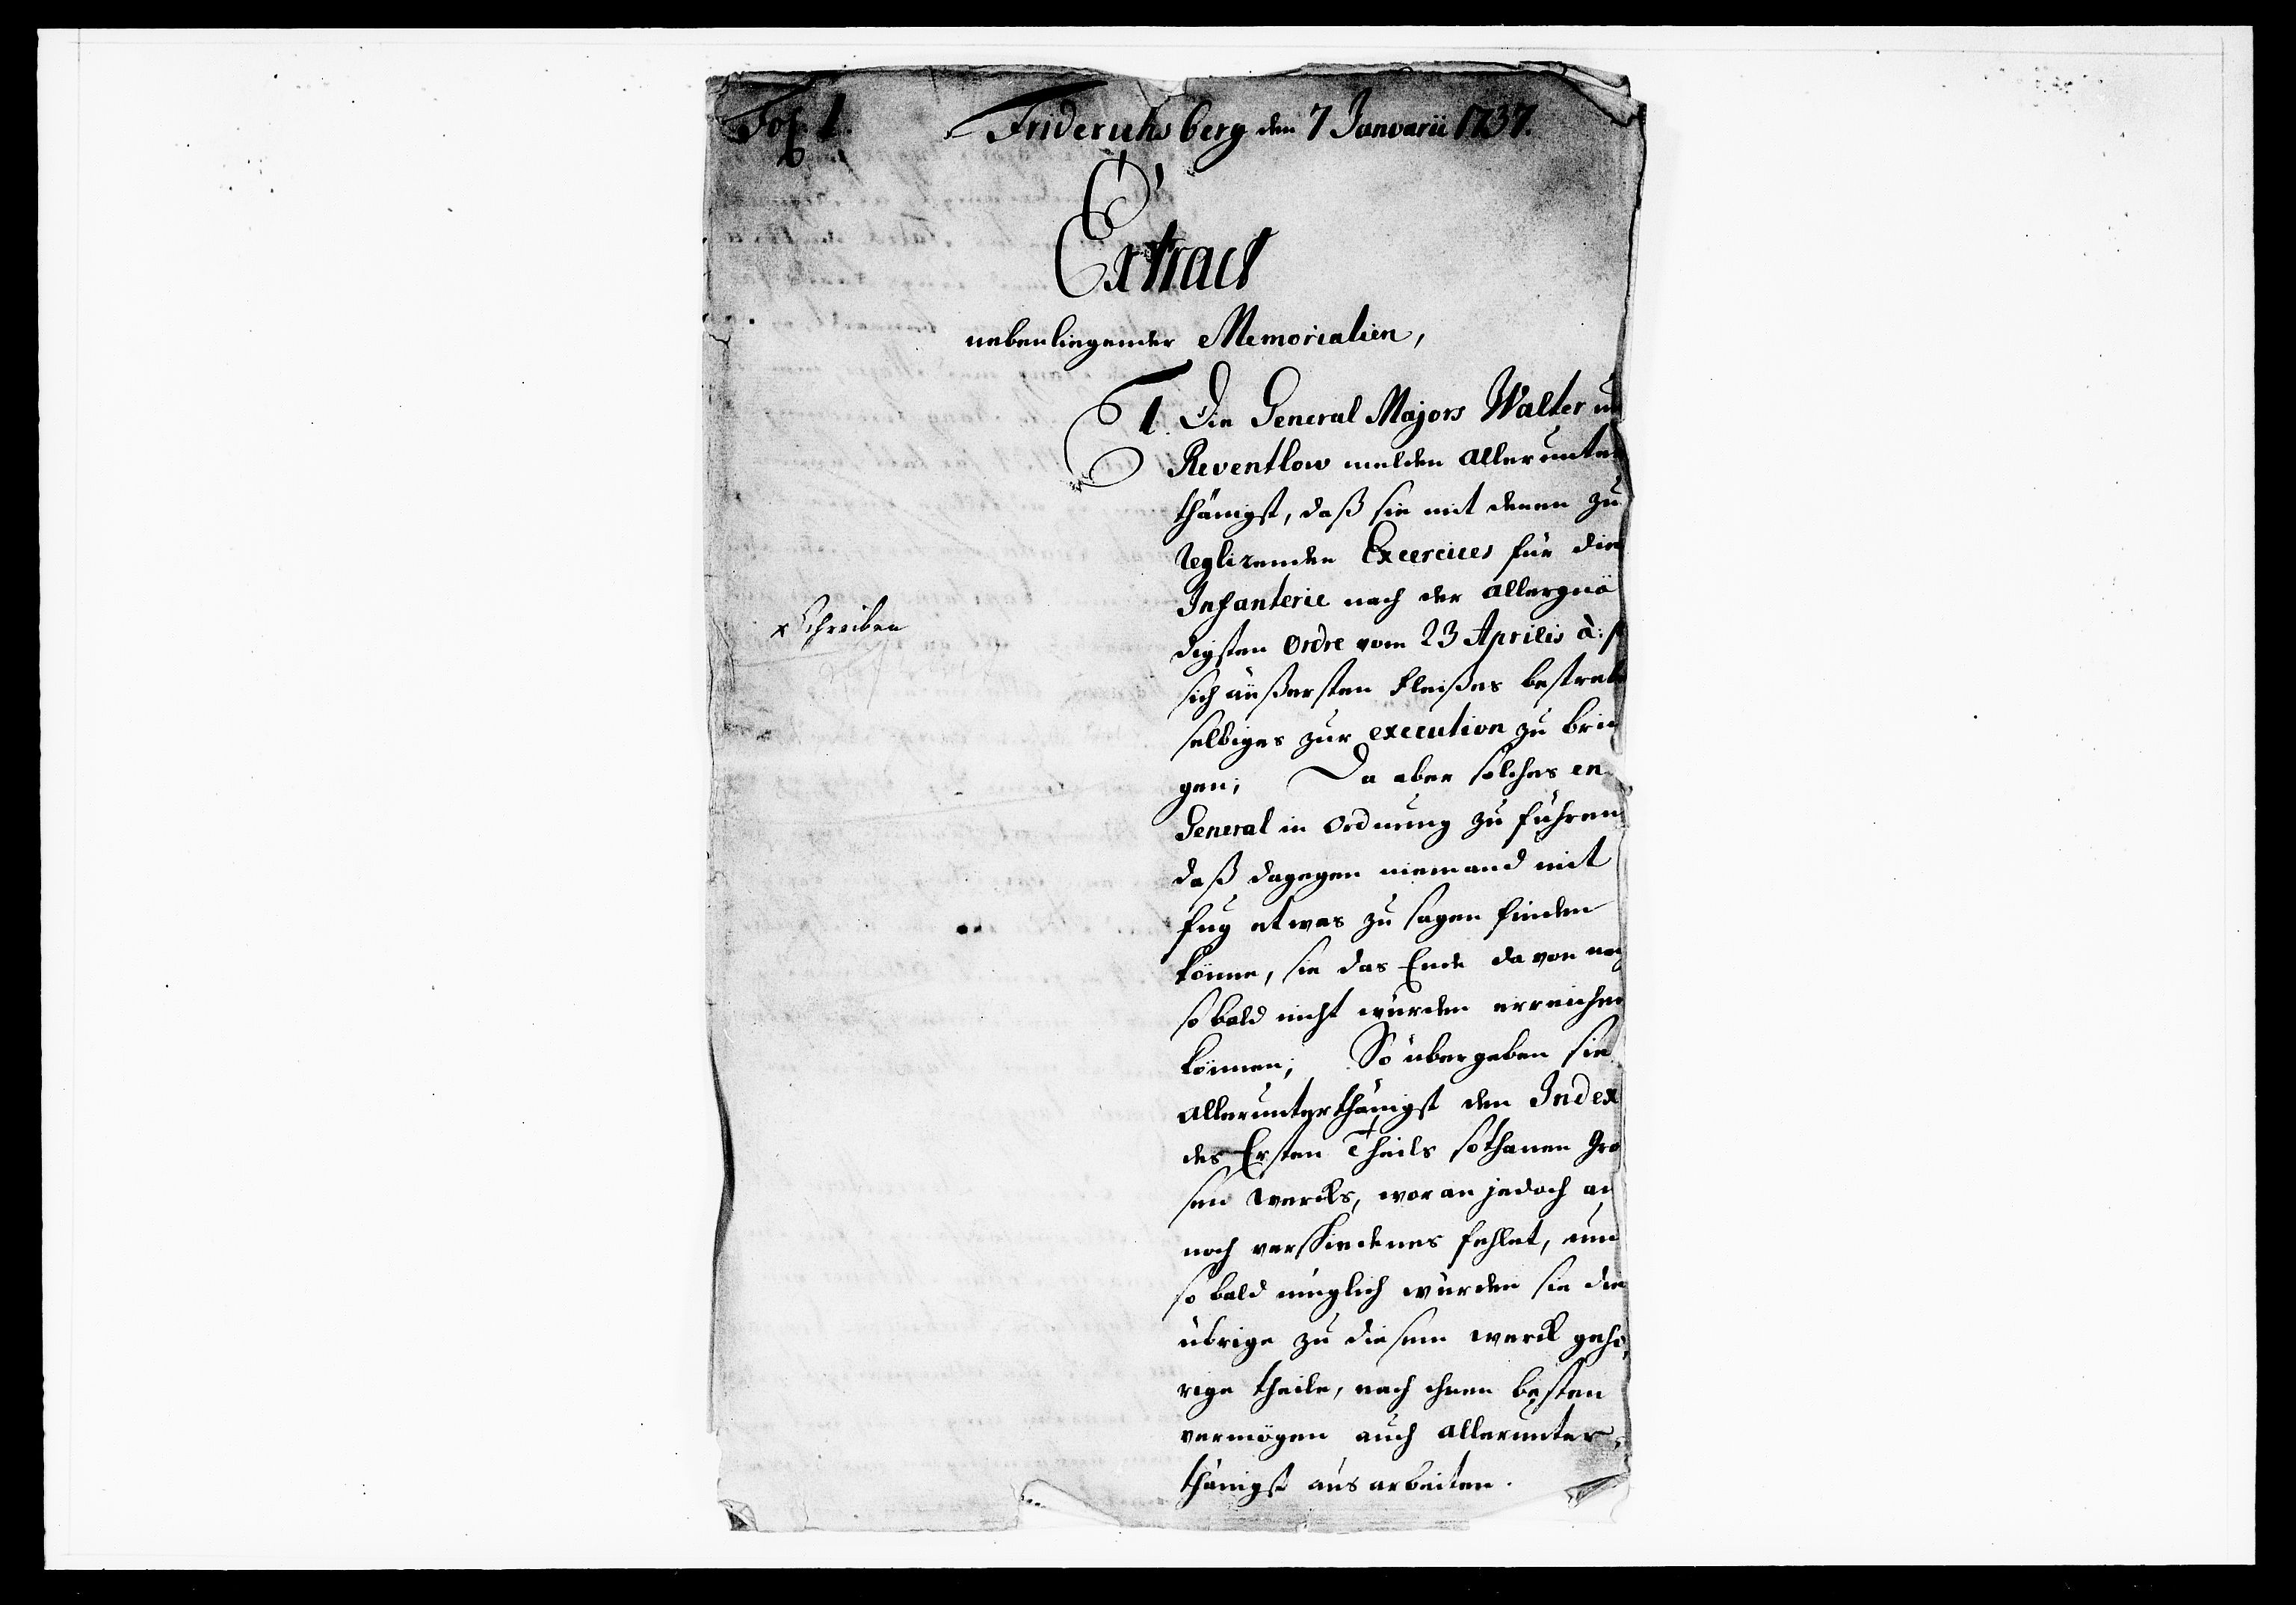 Fol. 1.
Friderichsberg den 7 Januarii 1737.
Extract
nebenliegender Memorialien,
1. Die General Majors Walter u
Reventlow melden allerunter
thänigst, daß sie mit denen zu
reglirenden Exercices für die
Infanterie nach der allergnä
digsten ordre vom 23 Aprilis a: p
sich äußersten Fleißes bestreb
selbiges zur execution zu brin
gen; Da aber solches en
General in ordnung zu führen
daß dagegen niemand mit
fug etwas zu sagen finden
könne, sie das Ende davon noch
so bald nicht würden erreichen
können; So übergeben sie
allerunterthänigst den Index
des Ersten Theils sothanen gro
sen wercks, woran jedoch an
noch verschiedenes fehlet, und
so bald müglich würden sie die
übrige zu diesem werck gehö
rige theile, nach ihren besten
vermögen auch allerunter-
thänigst aus arbeiten.
x Schreiben